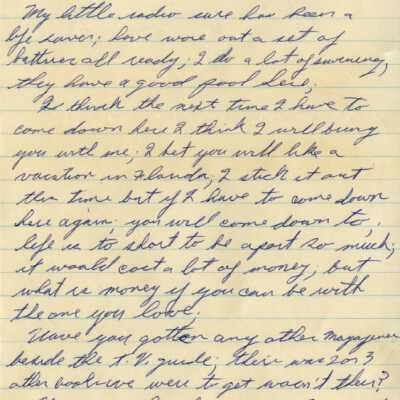 My little radio sure has been a
life saver; have wore out a set of
batteries all ready; I do a lot of swimming,
they have a good pool here;
I think the next time I have to
come down here I think I will bring
you with me; I bet you will like a
vacation in Florida; I stick it out
this time but if I have to come down
here again; you will come down to;
life is to short to be apart so much;
it would cost a lot of money; but
what is money if you can be with
the one you love.
Have you gotton any other magazines
beside the T.V. guide; their was 2 or 3
other books we were to get wasn't their?